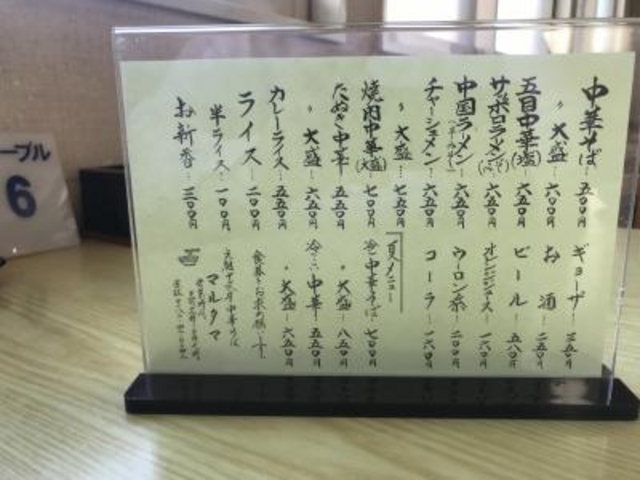 中華そば… 五〇〇円
〃 大盛… 六〇〇円
五目中華(塩) 六五〇円
サッポロラーメン(みそ) 六五〇円
中国ラーメン 六五〇円
チャーシューメン… 六五〇円
〃 大盛… 七五〇円
焼肉中華(大盛) 七〇〇円
たぬき中華 五五〇円
〃 大盛… 六五〇円
カレーライス… 五五〇円
ライス… 二〇〇円
半ライス… 一〇〇円
お新香… 三〇〇円
ギョーザ… 三五〇円
お酒… 二五〇円
ビール… 五八〇円
オレンジジュース… 一六〇円
ウーロン茶… 二〇〇円
コーラ… 一六〇円
夏メニュー
冷し中華そば… 七〇〇円
〃 大盛… 八五〇円
冷たい中華 五五〇円
〃 大盛… 六五〇円
食券をお求め願います
元祖十文字中華そば
マルタマ
ーブル
6